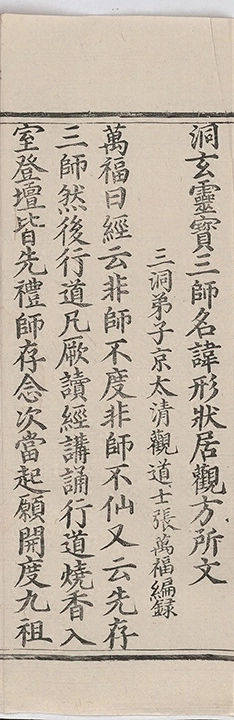 洞玄靈寶三師名諱形狀居觀方所文
三洞弟子京太清觀道士張萬福編録
萬福曰經云非師不度非師不仙又云先存
三師然後行道凡厥讀經講誦行道燒香入
室登壇皆先禮師存念次當起願開度九祖